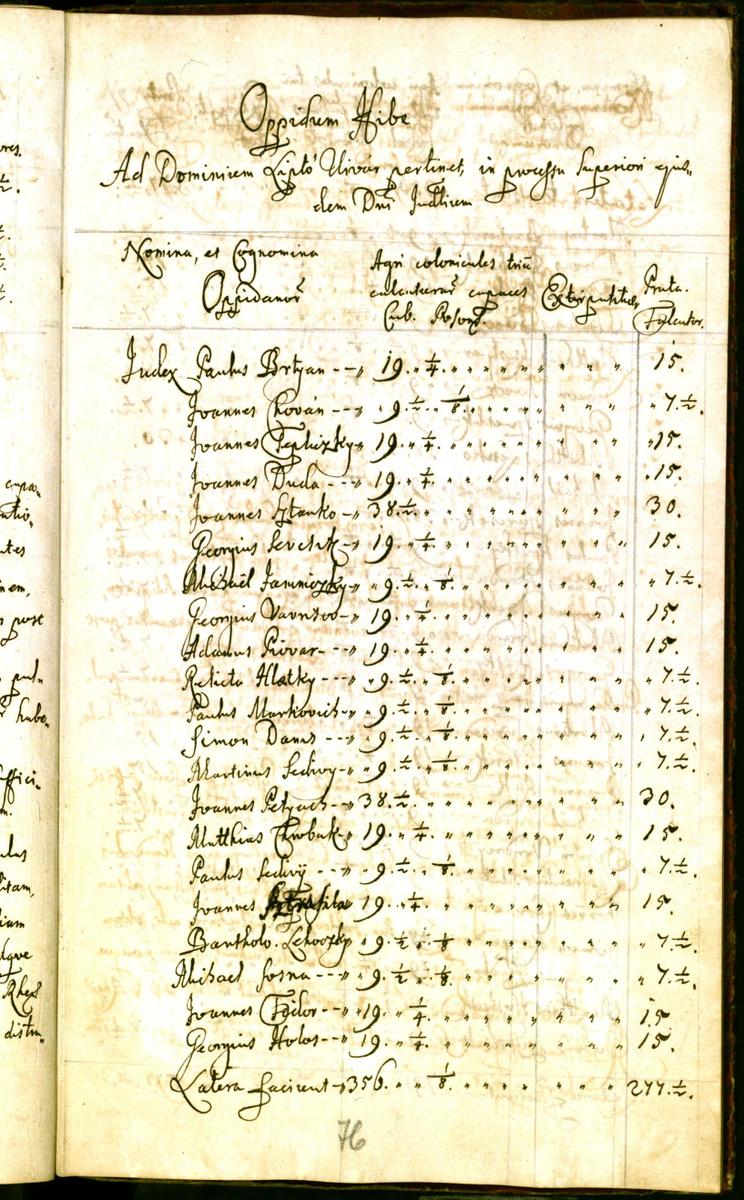 Oppidum Hibe
Ad Dominium Liptó Ujvár pertinet, in processu Superiori ejus„
dem Dni Judlium
Nomina, et Cognomina
Oppidanor̃
Agri colonicales triũ
calcaturar̃ capaces
Cub. Poson.
Extirpatitiæ
Prata.
Falcator.
Judex Paulus Brtyan - - „ 19. „ 1/4. „ „ „ „ „ „ „ „ 15.
Joannes Chován - - - „ 9. 1/2. „ 1/8. „ „ „ „ „ „ „ „ 7. 1/2.
Joannes Tepliczky „ 19. „ 1/4. „ „ „ „ „ „ „ „ 15.
Joannes Duda - - - „ 19. „ 1/4. „ „ „ „ „ „ „ „ 15.
Joannes Sztanko - „ 38. 1/2. „ „ „ „ „ „ „ „ 30.
Georgius Sevcsik - „ 19. „ 1/4. „ „ „ „ „ „ „ „ 15.
Michaël Jamniczky „ 9. 1/2. „ 1/8. „ „ „ „ „ „ „ 7. 1/2.
Georgius - „ 19. „ 1/4. „ „ „ „ „ „ „ „ 15.
Adamus Pivvar - - „ 19. „ 1/4. „ „ „ „ „ „ „ „ 15.
Relicta Hlatky - - - „ 9. 1/2. „ 1/8. „ „ „ „ „ „ „ 7. 1/2.
Paulus Markovich - „ 9. 1/2. „ 1/8. „ „ „ „ „ „ „ 7. 1/2.
Simon Dams - - - „ 9. 1/2. „ 1/8. „ „ „ „ „ „ „ 7. 1/2.
Martinus Sedivy - „ 9. 1/2. „ 1/8. „ „ „ „ „ „ „ 7. 1/2.
Joannes Petyach - - „ 38. 1/2. „ „ „ „ „ „ „ „ 30.
Matthias Chrobak „ 19. „ 1/4. „ „ „ „ „ „ „ „ 15.
Paulus Sedivÿ - - - „ 9. 1/2. „ 1/8. „ „ „ „ „ „ „ 7. 1/2.
Joannes 19. „ 1/4. „ „ „ „ „ „ „ „ 15.
Bartholo. Lehoczky „ 9. 1/2. „ 1/8. „ „ „ „ „ „ „ 7. 1/2.
Michael Sosna - - - „ 9. 1/2. „ 1/8. „ „ „ „ „ „ „ 7. 1/2.
Joannes Fedor - - „ 19. „ 1/4. „ „ „ „ „ „ „ „ 15
Georgius Holos - - „ 19. „ 1/4. „ „ „ „ „ „ „ „ 15.
Latera faciunt - „ 356. „ „ 1/8. „ „ „ „ „ „ „ 277. 1/2.
76